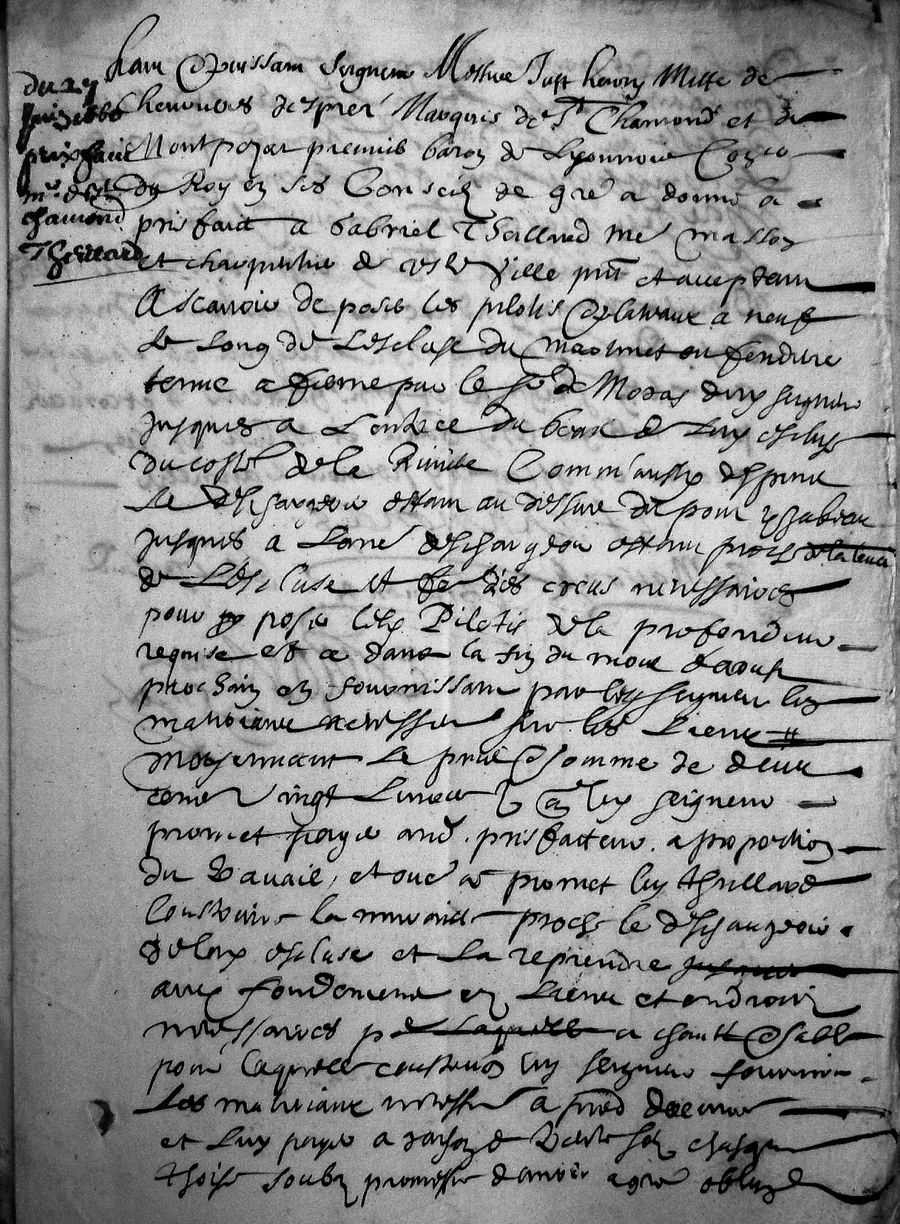 du 27
juin 1666
prixfaict
mr de St
chamond
Theillard
hault & puissant seigneur Messire Just henry Mitte de
chevrieres Marquis de St Chamond et de
Montpezat premier baron de Lyonnois Coner
du Roy en ses Conseilz de gre a donné a
prisfaict a Gabriel Theillard me masson
et charpentier de ville pnt et acceptant
A scavoir de poser les pilotis a neuf
Le Long de Lescluse du ou fendure
tenue a ferme par le sr de Moras dud seigneur
jusques a L'entrée du de Lad escluse
du costé de la Riviere Comm'aussy despuis
Le deschargeoir estant au dessus du pont
jusques a L'autre deschargeoir estant proche
de L'escluse et les creus necessaires
pour poser lesd Pilotis de la profondeur
requise et ce dans la fin du mois d'aoust
prochain en fournissant par led seigneur les
materiaux necessres sur les Lieux
moyennant Le prix & somme de deux
cent vingt Livres que led seigneur
promet payer aud prisfacteur a proportion
du travail, et outre ce promet led theillard
Construire la muraille proche le deschargeoir
de lad escluse et La reprendre jusques
aux fondement en Lieux et endroitz
necessaires laquelle a chaux & sable
pour laquelle construction led seigneur fournira
Les materiaux necessres a pied d'oeuvre
et Luy payer a raison de solz chasque
thoise soubz promesse d'avoir a gré obligé